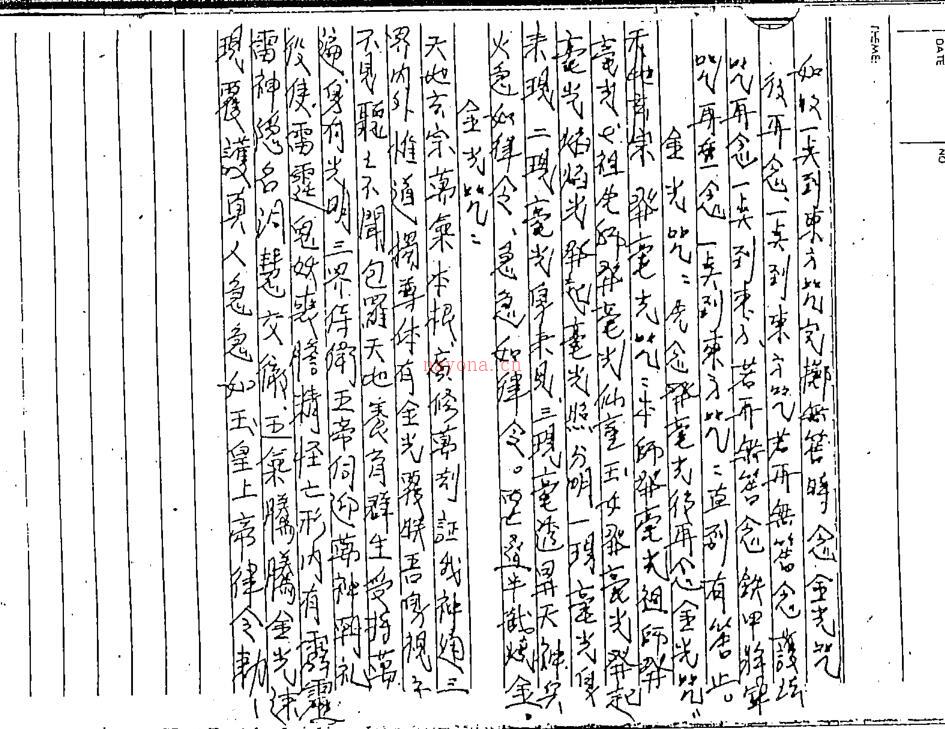 DATE
NO
THEME:
如效一点到東方咒完擲無筶時念金光咒
後再念一点到東方咒若再無筶念護坛
咒再念一点到東方若再無筶念鉄甲將軍
咒再念一点到東方咒二直到有筶止。
金光咒二先念發毫光後再念金光咒
天地玄宗發毫光咒二本師發毫光祖師發
毫光七祖先師發毫光仙童玉女發毫光發起
毫光焰焰光發起毫光照分明一現毫光身
未現二現毫光身未見三現毫透昇天神兵
火急如律令、急急如律令。
金光咒二
天地玄宗萬氣本根廣修萬刦証我神通三
界内外惟道獨尊体有金光覆映吾身視之
不見聽之不聞包羅天地養育群生受持萬
遍身有光明三界侍衛五帝伺迎萬神朝礼
役使雷霆鬼妖喪膽精怪亡形内有霹靂
雷神隱名洞慧交徹五氣騰騰金光速
現覆護真人急急如玉皇上帝律令勅
nayona.cn